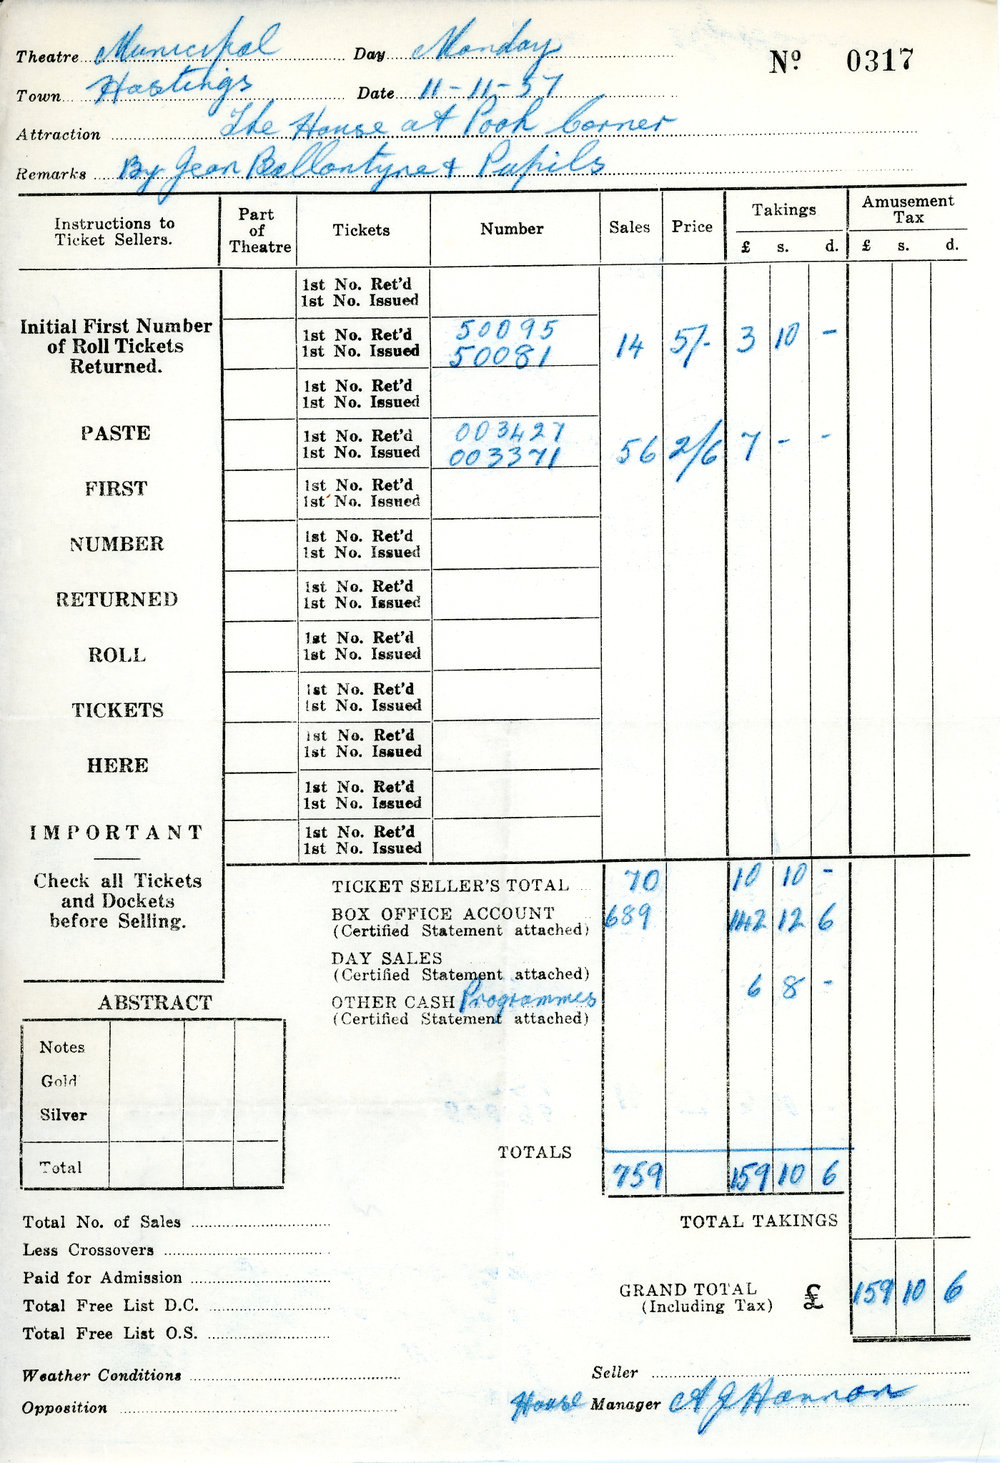 Theatre Municipal Day Monday Nº 0317
Town Hastings Date 11-11-57
Attraction The House at Pooh Corner
Remarks By Jean Ballantyne & Pupils
Instructions to Ticket Sellers. Part of Theatre Tickets Number Sales Price Takings £ s. d. Amusement Tax £ s. d.
1st No. Ret'd
1st No. Issued
Initial First Number of Roll Tickets Returned.
1st No. Ret'd 50095
1st No. Issued 50081 14 5/- 3 10 -
1st No. Ret'd
1st No. Issued
PASTE
1st No. Ret'd 003427
1st No. Issued 003371 56 2/6 7 - -
FIRST
1st No. Ret'd
1st No. Issued
NUMBER
1st No. Ret'd
1st No. Issued
RETURNED
1st No. Ret'd
1st No. Issued
ROLL
1st No. Ret'd
1st No. Issued
TICKETS
1st No. Ret'd
1st No. Issued
HERE
1st No. Ret'd
1st No. Issued
1st No. Ret'd
1st No. Issued
IMPORTANT
1st No. Ret'd
1st No. Issued
Check all Tickets
and Dockets
before Selling.
TICKET SELLER'S TOTAL 70 10 10 -
BOX OFFICE ACCOUNT 689 142 12 6
(Certified Statement attached)
DAY SALES
(Certified Statement attached)
OTHER CASH Programmes 6 8 -
(Certified Statement attached)
ABSTRACT
Notes
Gold
Silver
Total
TOTALS 759 159 10 6
Total No. of Sales
TOTAL TAKINGS
Less Crossovers
Paid for Admission
GRAND TOTAL £ 159 10 6
(Including Tax)
Total Free List D.C.
Total Free List O.S.
Weather Conditions
Seller
Opposition
House Manager A J Hannan